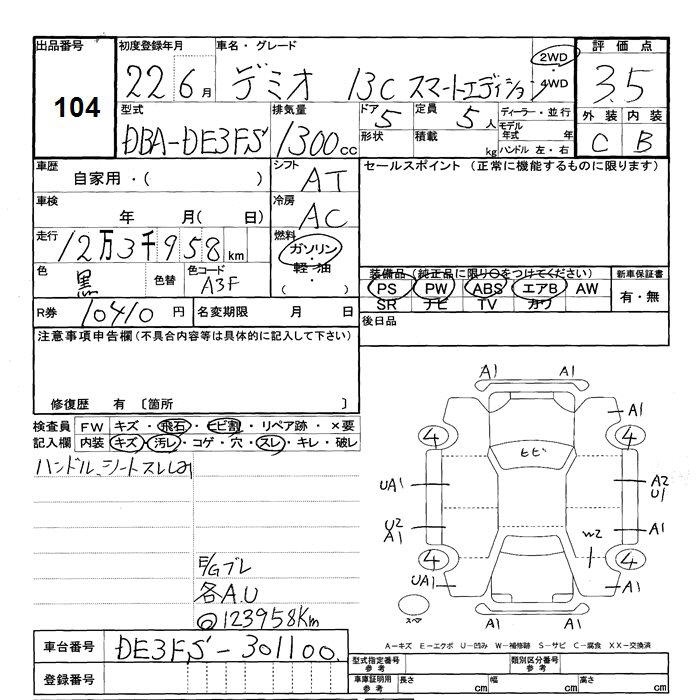 出品番号 初度登録年月 車名・グレード 評価点
104 22 6月 デミオ 13C スマートエディション 2WD・4WD 3.5
型式 排気量 ドア 5 定員 5人 ディーラー・並行 外装 内装
DBA-DE3FS 1300cc 形状 積載 kg モデル年式 年 C B
ハンドル 左・右
車歴 シフト セールスポイント (正常に機能するものに限ります)
自家用・( ) AT
車検 冷房
年 月( 日) AC
走行 12万3千958km 燃料
ガソリン・軽油・( )
色 黒 色替 色コード A3F 装備品 (純正品に限り○をつけてください) 新車保証書
PS PW ABS エアB AW 有・無
SR ナビ TV カワ
R券 10410円 名変期限 月 日 後日品
注意事項申告欄(不具合内容等は具体的に記入して下さい)
修復歴 有 〔箇所 〕
検査員 FW キズ・飛石・ヒビ割・リペア跡・×要
記入欄 内装 キズ・汚レ・コゲ・穴・スレ・キレ・破レ
ハンドル、シートスレ
E/Gブレ
各A.U
◎123958Km
A1 A1
A1
4 4
ヒビ
UA1 A2
U1
U2
A1 W2 A1
4 4
UA1 A1
スペア
A1 A1
A-キズ E-エクボ U-凹み W-補修跡 S-サビ C-腐食 XX-交換済
車台番号 DE3FS-301100
登録番号
型式指定番号 参考 類別区分番号 参考
車庫証明用 参考 長さ cm 幅 cm 高さ cm